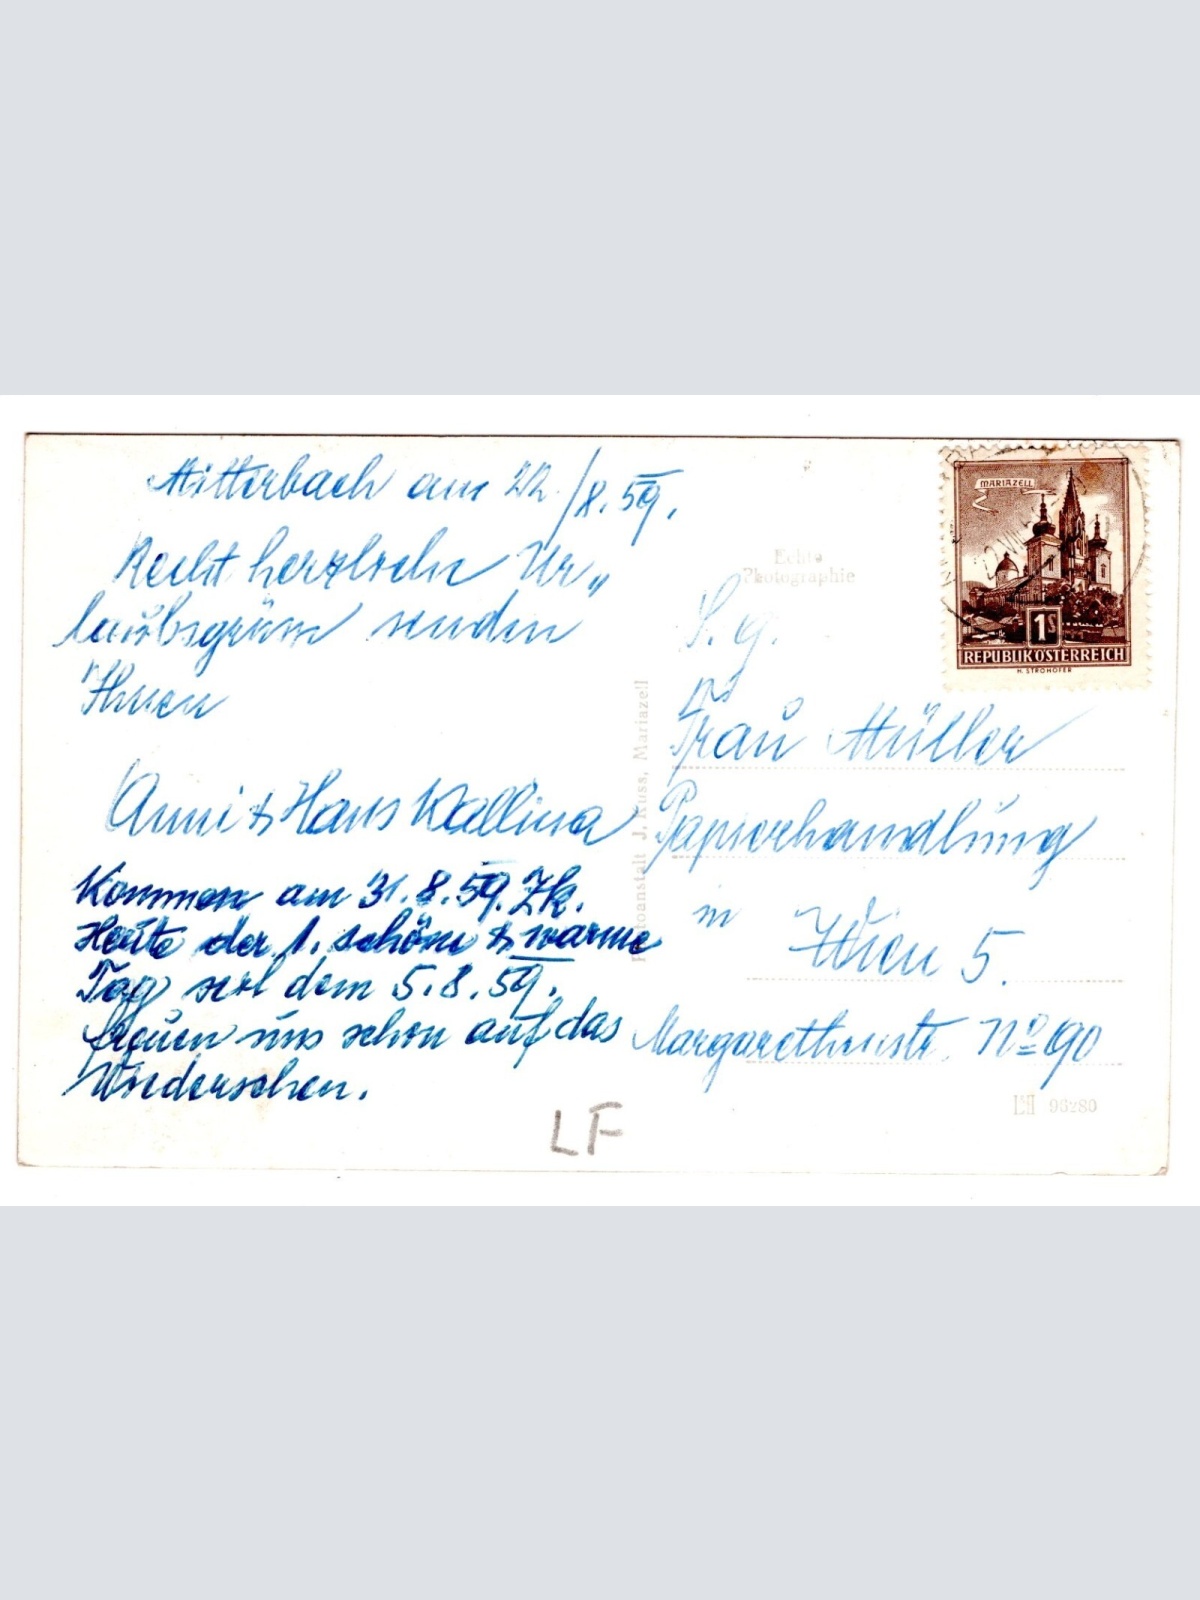 Mitterbach am 22./8.59.
Recht herzliche Ur„
laubsgrüße senden
Ihnen
Anni & Hans Kallina
Kommen am 31.8.59. Zk.
Heute der 1. schöne & warme
Tag seit dem 5.8.59.
freuen uns schon auf das
Wiedersehen.
LF
Echte
Photographie
Fotoanstalt J. Kuss, Mariazell
MARIAZELL
1S
REPUBLIK ÖSTERREICH
H. STROHOFER
S. g.
Frau Müller
Papierhandlung
in Wien 5.
Margarethenstr. No 90
96280